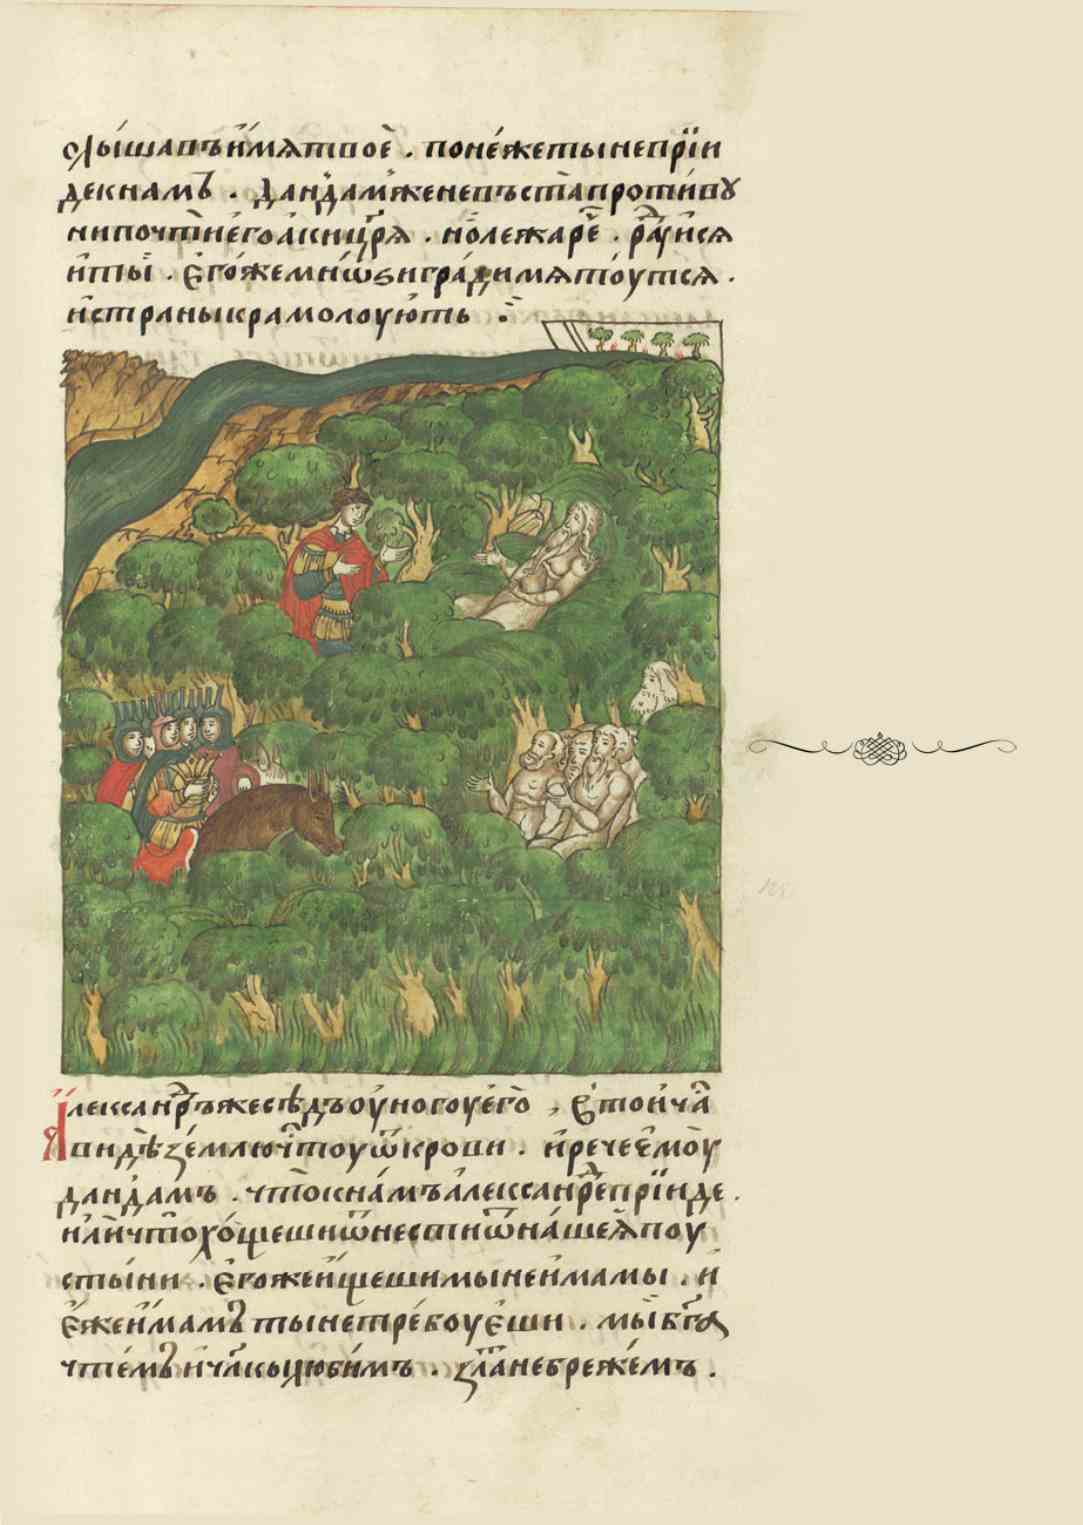 слы́шавъ и҆́мѧ твоѐ . поне́же ты не прїи
де к намъ . Данда́м же не въста̀ проти́вꙋ
ни почтѐ него̀ а҆́ки цр҃ѧ . но̀ лежа речѐ . ра́дꙋйсѧ
и҆ ты̀ . є҆го́же мнѡ́ѕи гра́ди мѧто́утсѧ .
и҆ страны крамолоую́ть :
Алеѯандръ же сѣдъ оу҆ ногоу є҆го̀ , є҆ то́и ча
ви́дѣ зе́млю чтоу ѿ крови . и҆ рече є҆мо̀у
данда́мъ . что̀ к на́мъ а҆леѯандре прїиде .
и҆лѝ что̀ хо́щеши ѿнести ѿ на́шеѧ̀ поу
сты́ни . є҆гоже и҆́щеши мы не и҆мамы . и҆
є҆́же и҆мамъ ты не тре́боуєши . мы̀ бг҃а
чте́мъ и҆ чл҃кы лю́бимъ . зла́та небреже́мъ .